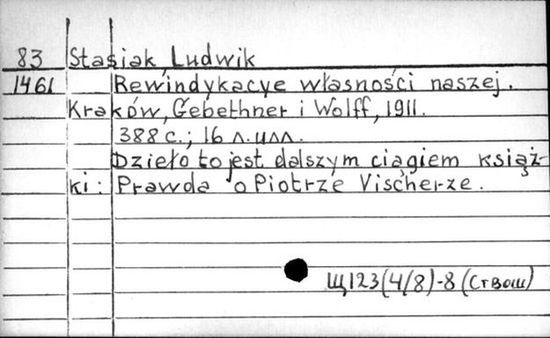 83 Stasiak, Ludwik
1461 Rewindykacye własności naszej.
Kraków, Gebethner i Wolff, 1911.
388 с.; 16 л. илл.
Dzieło to jest dalszym ciągiem książ-
ki: Prawda o Piotrze Vischerze.
Щ123(4/8)-8 (Ствош)